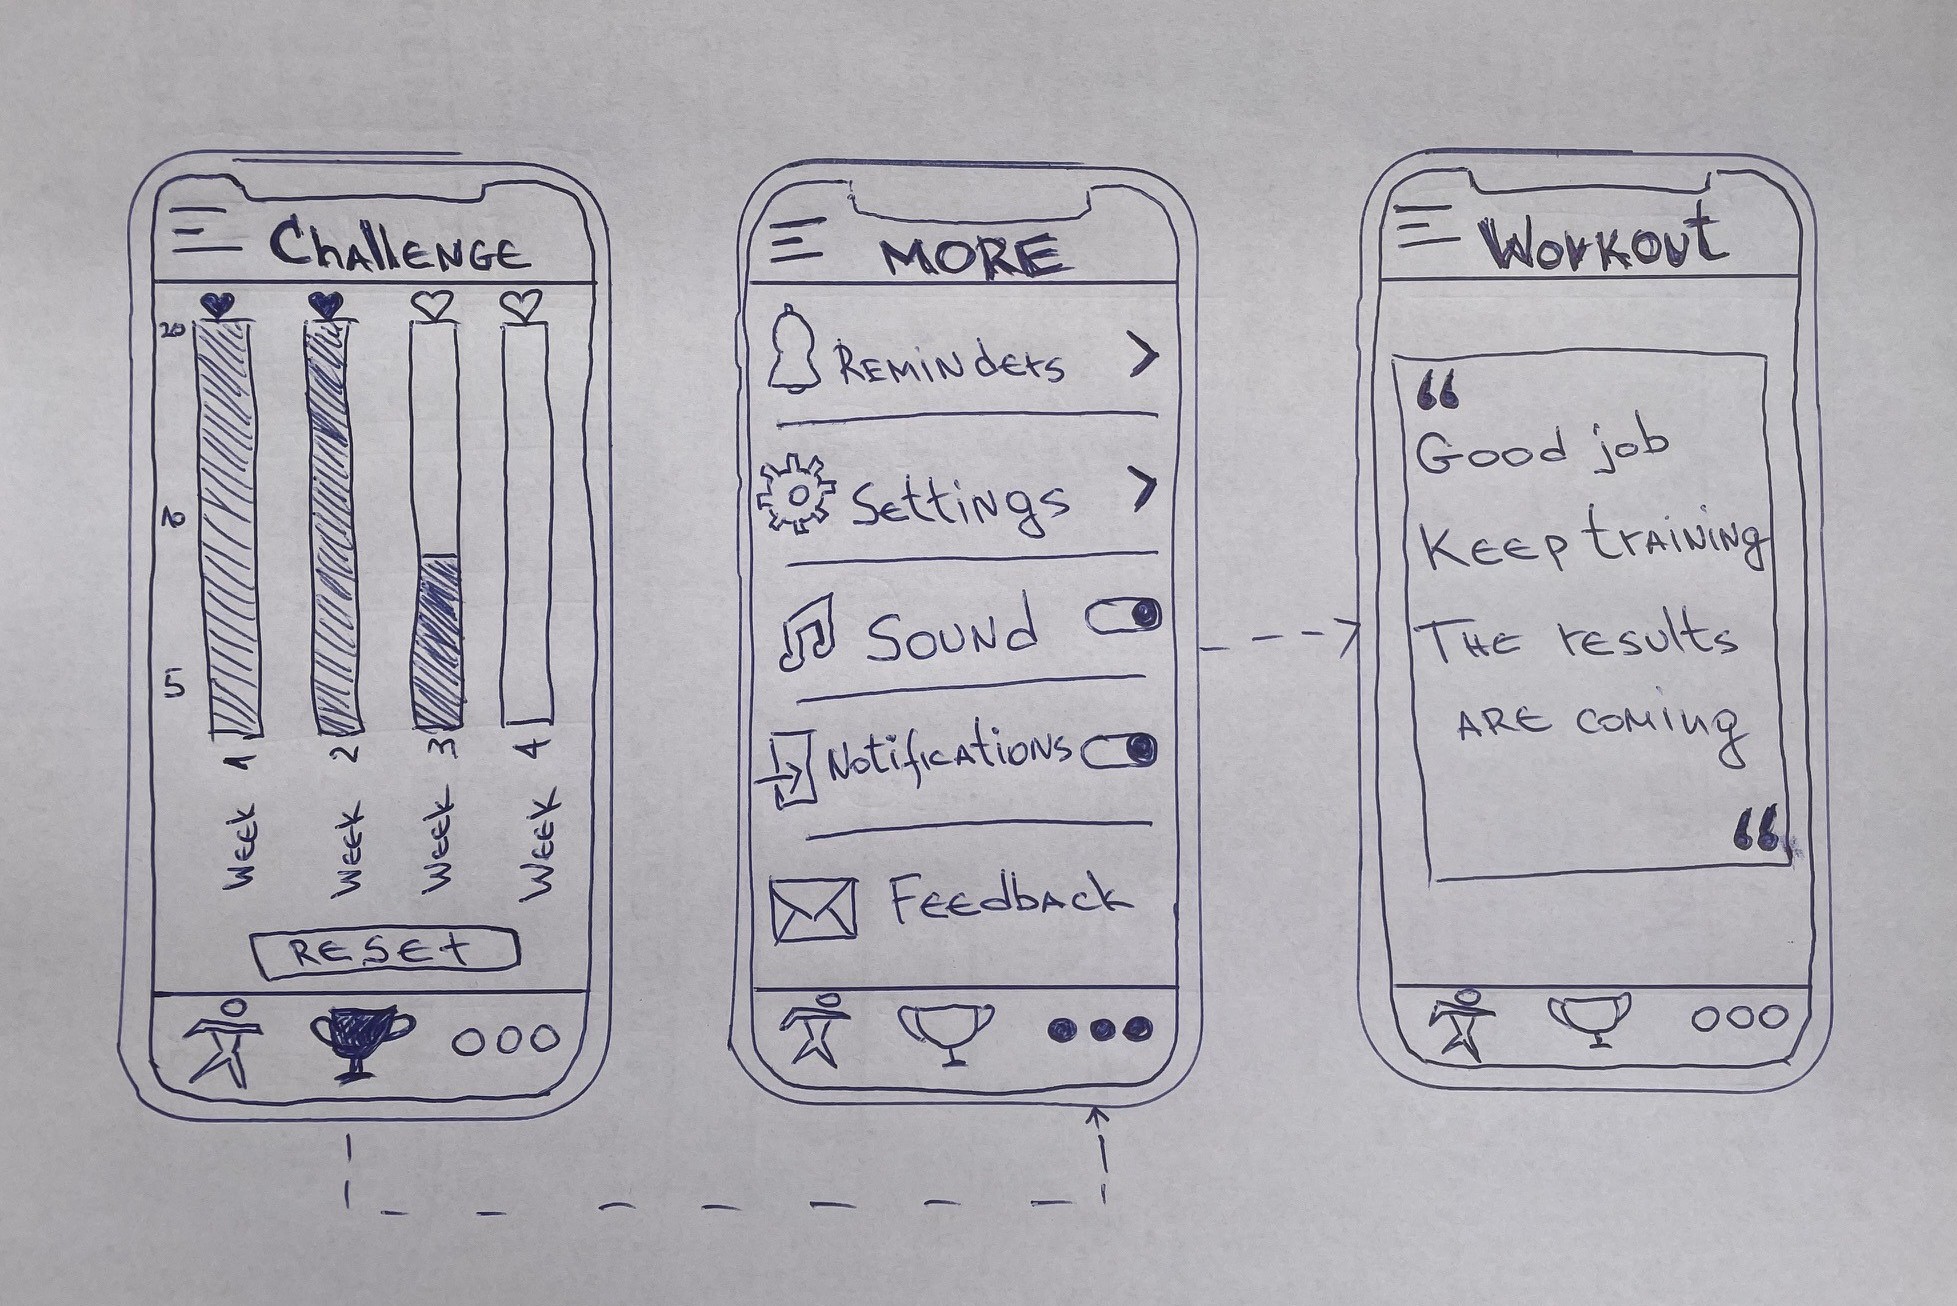 Challenge
20
10
5
Week 1
Week 2
Week 3
Week 4
RESET
MORE
Reminders
Settings
Sound
Notifications
Feedback
Workout
“
Good job
Keep training
The results
are coming
“